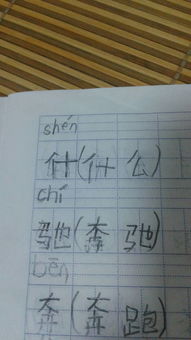 shén
什(什公)
chí
驰(奔驰)
bēn
奔(奔跑)